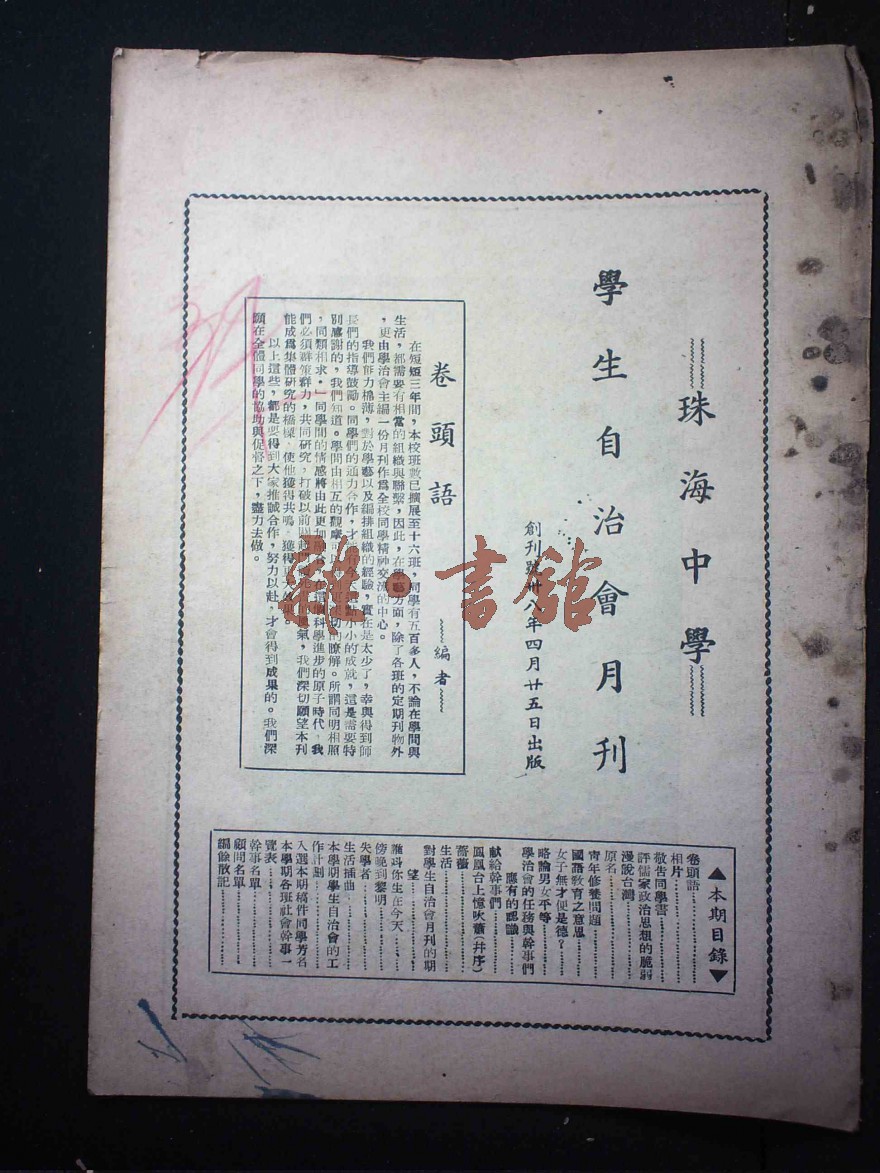 珠海中學
學生自治會月刊
創刊號卅八年四月廿五日出版
卷頭語
編者
在短短三年間，本校班數已擴展至十六班，同學有五百多人，不論在學問與
生活，都需要有相當的組織與聯繫，因此，在學藝方面，除了各班的定期刊物外
，更由學治會主編一份月刊作為全校同學精神交流的中心。
我們能力棉薄，對於學藝以及編排組織的經驗，實在是太少了，幸與得到師
長們的指導鼓勵。同學們的通力合作，才能小小的成就，這是需要特
別感謝的，我們知道。學問由相互的觀摩可以切的瞭解。所謂同明相照
，同類相求，一同學間的情感將由此更加科學進步的原子時代，我
們必須群策群力，共同研究，打破以前氣，我們深切願望本刊
能成為集體研究的橋樑，使他獲得共鳴，獲得
以上這些，都是要得到大家推誠合作，努力以赴，才會得到成果的。我們深
願在全體同學的協助與促督之下，盡力去做。
雜書館
▲本期目錄▼
卷頭語
相片
敬告同學書
評儒家政治思想的脆弱
漫說台灣
原名
青年修養問題
國語教育之意思
女子無才便是德？
略論男女平等
學治會的任務與幹事們
應有的認識
献給幹事們
鳳凰台上憶吹簫（井序）
薔薇
生活
對學生自治會月刊的期
望
難為你生在今天
傍晚到黎明
失學者
生活插曲
本學期學生自治會的工
作計劃
入選本期稿件同學芳名
本學期各班社會幹事一
覽表
幹事名單
顧問名單
編餘散記